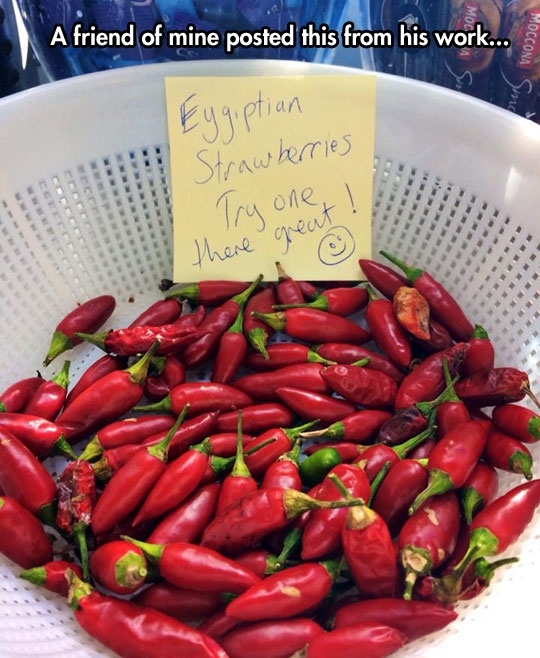 A friend of mine posted this from his work...
MOCCONA
Eygiptian
Strawberries
Try one
there great!